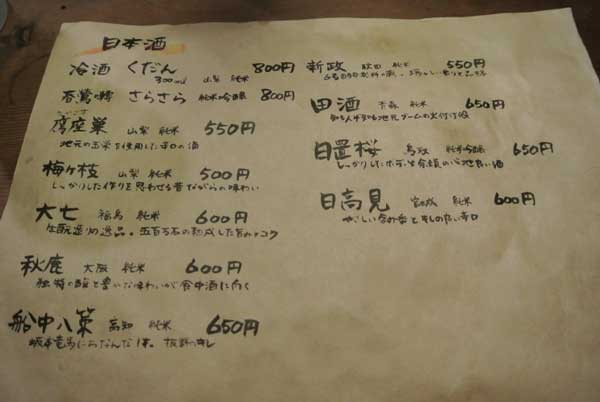 日本酒
冷酒 くだん 800円
300ml 山梨 純米
春鶯囀 さらさら 純米吟醸 800円
鷹座巣 山梨 純米 550円
地元の玉栄を使用した辛口の酒
梅ヶ枝 山梨 純米 500円
しっかりした作りを思わせる昔ながらの味わい
大七 福島 純米 600円
生酛造りの逸品。五百万石の熟成した旨みとコク
秋鹿 大阪 純米 600円
独特の酸と豊かな味わいが食中酒に向く
船中八策 高知 純米 650円
坂本竜馬にちなんだ1本。抜群のキレ
新政 秋田 純米 550円
田酒 青森 純米 650円
知る人ぞ知る地元ブームの火付け役
日置桜 鳥取 純米吟醸 650円
しっかりしたボディと余韻の心地良い酒
日高見 宮城 純米 600円
やさしい含み香とキレのたい辛口